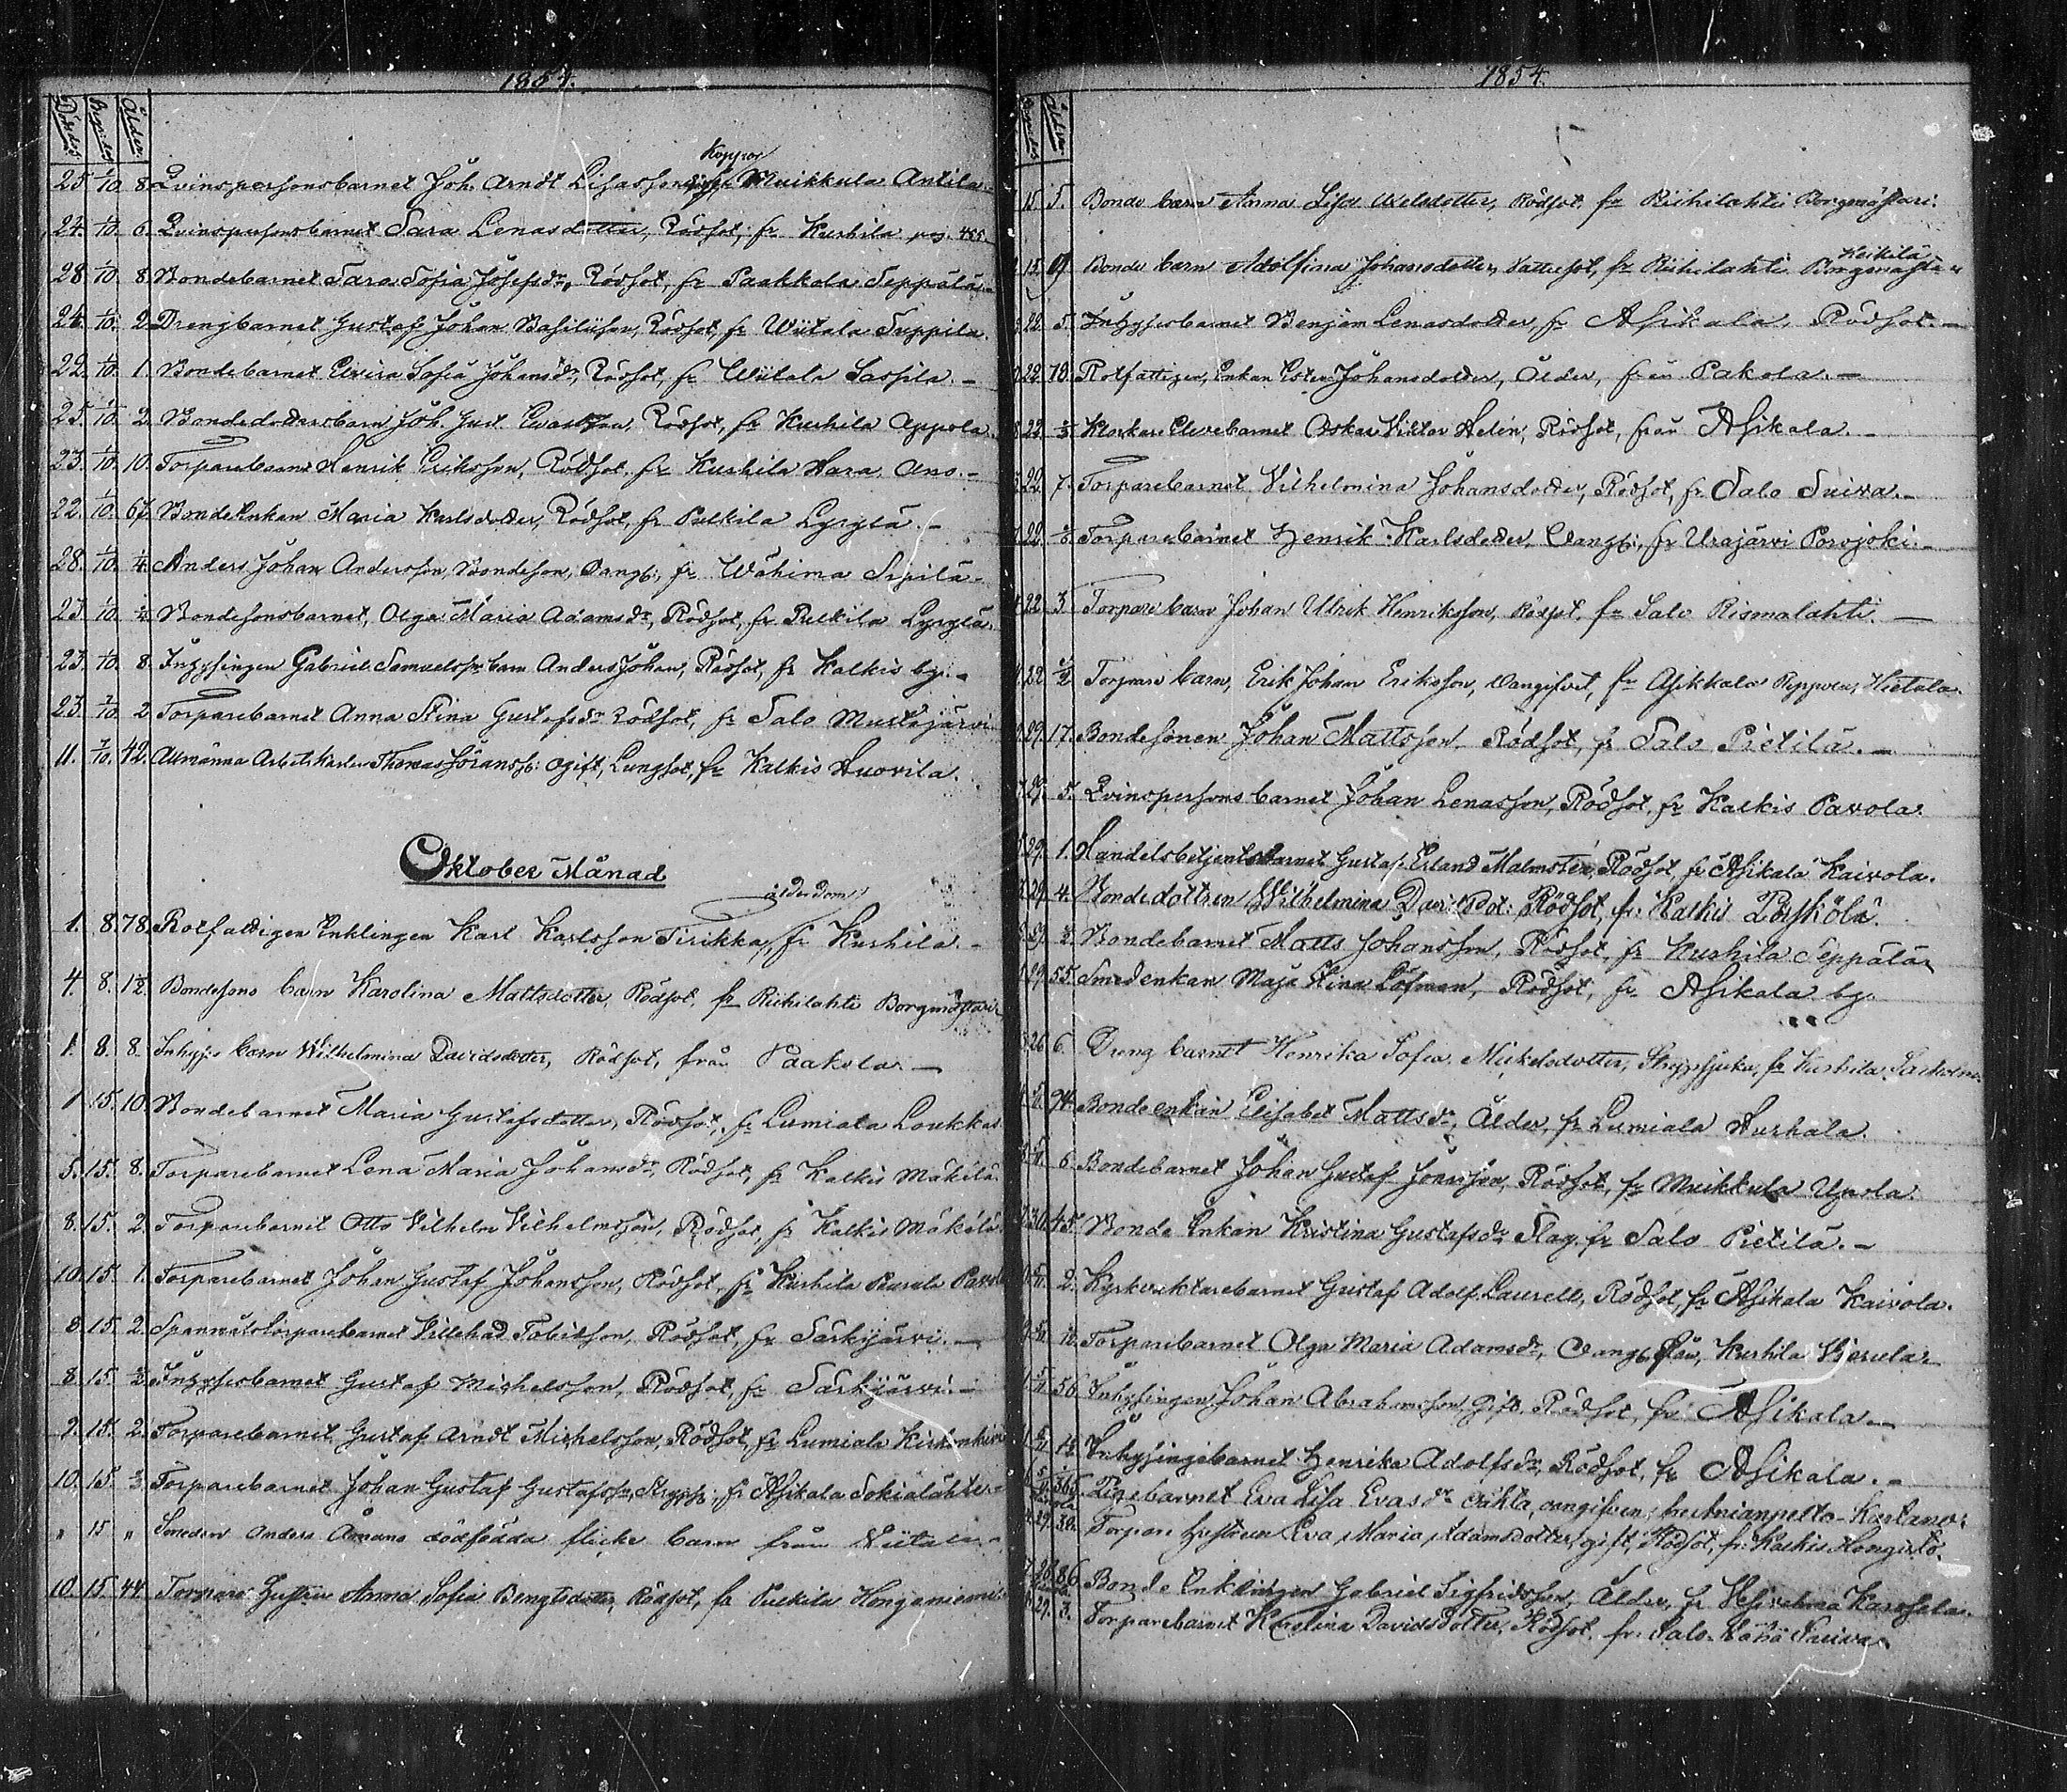 1854.
Dödedag Begrafdag Ålder
Koppor
25. 1/10. 8. Qvinspersonsbarnet Joh. Arndt Lisasson fr Muikkula Antila
24. 1/10. 6. Qvinspersonsbarnet Sara Lenasdotter, Rödsot, fr Kurhila pag. 455.
28. 1/10. 8. Bondebarnet Sara Sofia Josefsdr, Rödsot, fr Paakkola Seppälä
24. 1/10. 2. Drengbarnet Gustaf Johan Basiliison, Rödsot, fr Wiitala Suppila.
22. 1/10. 1. Bondebarnet Elvira Sofia Johansdr, Rödsot, fr Wiitala Sassila. –
25. 1/10. 2. Bondedottersbarn Joh. Gust. Evasson, Rödsot, fr Kurhila Appola.
23. 1/10. 10. Torparebarnet Henrik Eriksson, Rödsot, fr Kurhila Hara Ano. –
22. 1/10. 67. Bondeenkan Maria Karlsdotter, Rödsot, fr Pulkila Lyylä. –
28. 1/10. 1/4. Anders Johan Andersson, Bondeson, Slags:, fr Wähimaa Sipilä –
23. 1/10. Bondesonsbarnet, Olga Maria Adamsdr, Rödsot, fr Pulkila Lyylä.
23. 1/10. 8. Inhysingen Gabriel Samuelss: barn Anders Johan, Rödsot, fr Kalkis by. –
23. 7/10. 2. Torparebarnet Anna Stina Gustafsdr Rödsot, fr Salo Mustajärvi
11. 7/10. 42. Allmänna Arbetskarlen Thomas Göranss: ogift, Lungsot, fr Kalkis Huovila.
Oktober Månad
ålderdom
1. 8. 78. Rotfattigen Enklingen Karl Karlsson Tirikka, fr Kurhila. –
4. 8. 1 1/2. Bondesons barn Karolina Mattsdotter, Rödsot, fr Riihilahti Borgmästari
1. 8. 8. Inhyses barn Wilhelmina Davidsdotter, Rödsot, från Paakola –
1 15. 10. Bondebarnet Maria Gustafsdotter, Rödsot, fr Lumiala Loukkas
5. 15. 8. Torparebarnet Lena Maria Johansdr, Rödsot, fr Kalkis Mäkilä.
8. 15. 2. Torparebarnet Otto Vilhelm Vilhelmsson, Rödsot, fr Kalkis Mäkelä
10. 15. 1. Torparebarnet Johan Gustaf Johansson, Rödsot, fr Kurhila Pavola
8. 15. 2. Spannmålstorparebarnet Villehad Tobiisson, Rödsot, fr Särkijärvi. –
8. 15. Inhysesbarnet Gustaf Michelsson, Rödsot, fr Särkijärvi. –
9. 15. 2. Torparebarnet Gustaf Arndt Michelsson, Rödsot, fr Lumiala
10. 15. Torparebarnet Johan Gustaf Gustafsson, Strypsj:, fr Asikala Sokialahti –
" 15 " Smeden Anders Åmans dödfödda flicke barn från Wiitala –
10. 15. 44. Torpare Hustrun Anna Sofia Bengtsdotter, Rödsot, fr Pulkila Honganiemi
1854.
Ålder
15. 5. Bonde barn Anna Lisa Axelsdotter, Rödsot, fr Riihilahti Borgmästari.
Heikilä
15. 9. Bonde barn Adolfina Johansdotter, Vattusot, fr Riihilahti Borgmästari
22. 5. Inhysesbarnet Benjam Lenasdotter, fr Asikala, Rödsot. –
22. 79. Rotfattigen, Enkan Ester Johansdotter, Ålder, från Pakola. –
22. Klockare Elevebarnet Oskar Viktor Helin, Rödsot, från Asikala. –
22. 7. Torparebarnet Vilhelmina Johansdotter, Rödsot, fr Salo Suiva. –
22. Torparebarnet Henrik Karlsdotter, Slags:, fr Urajärvi Porvjoki –
22. 3. Torpare barn Johan Ulrik Henriksson, Rödsot, fr Salo Rismalahti. –
22. 1/2 Torpare barn, Erik Johan Eriksson, Oangifvet, fr Asikkala Reppola, Hietala.
29. 17. Bondesonen Johan Mattsson, Rödsot, fr Salo Pietilä. –
29. 5. Qvinspersons barnet Johan Lenasson, Rödsot, fr Kalkis Pavola.
29. 1. Handelsbetjentsbarnet Gustaf Erland Malmsten, Rödsot, fr Asikala Kaivola.
29. 4. Bondedottren Wilhelmina Davidsdot: Rödsot, fr: Kalkis Pörsköla.
29. Bondebarnet Matts Johansson, Rödsot, fr Kurhila Seppälä
29. 55. Smedenkan Maja Stina Löfman, Rödsot, fr Asikala by.
26 6. Dreng barnet Henrika Sofia Mickelsdotter, Strypsjuka, fr Kurhila
94. Bondeenkan Elisabet Mattsdr, Ålder, fr Lumiala Hurhala.
6. Bondebarnet Johan Gustaf Jonsson, Rödsot, fr Muikkula Upola.
45. Bonde Enkan Kristina Gustafsdr Slag, fr Salo Pietilä. –
2. Kyrkväktarebarnet Gustaf Adolf Laurell, Rödsot, fr Asikala Kaivola.
Torparebarnet Olga Maria Adamsdr, Oangs: från, Kurhila
56. Inhysingen Johan Abrahamsson, gift, Rödsot, fr Asikala –
Inhysingebarnet Henrika Adolfsdr, Rödsot, fr Asikala. –
Pigebarnet Eva Lisa Evasdr oäkta, oangifven, fr Anianpelto Kartano.
29. 30. Torpare hustrun Eva Maria Adamsdotter, gift, Rödsot, fr: Kalkis Hongisto.
86. Bonde Enklingen Gabriel Sigfridsson, Ålder, fr
29. 3. Torparebarnet Karolina Davidsdotter, Rödsot, fr Salo